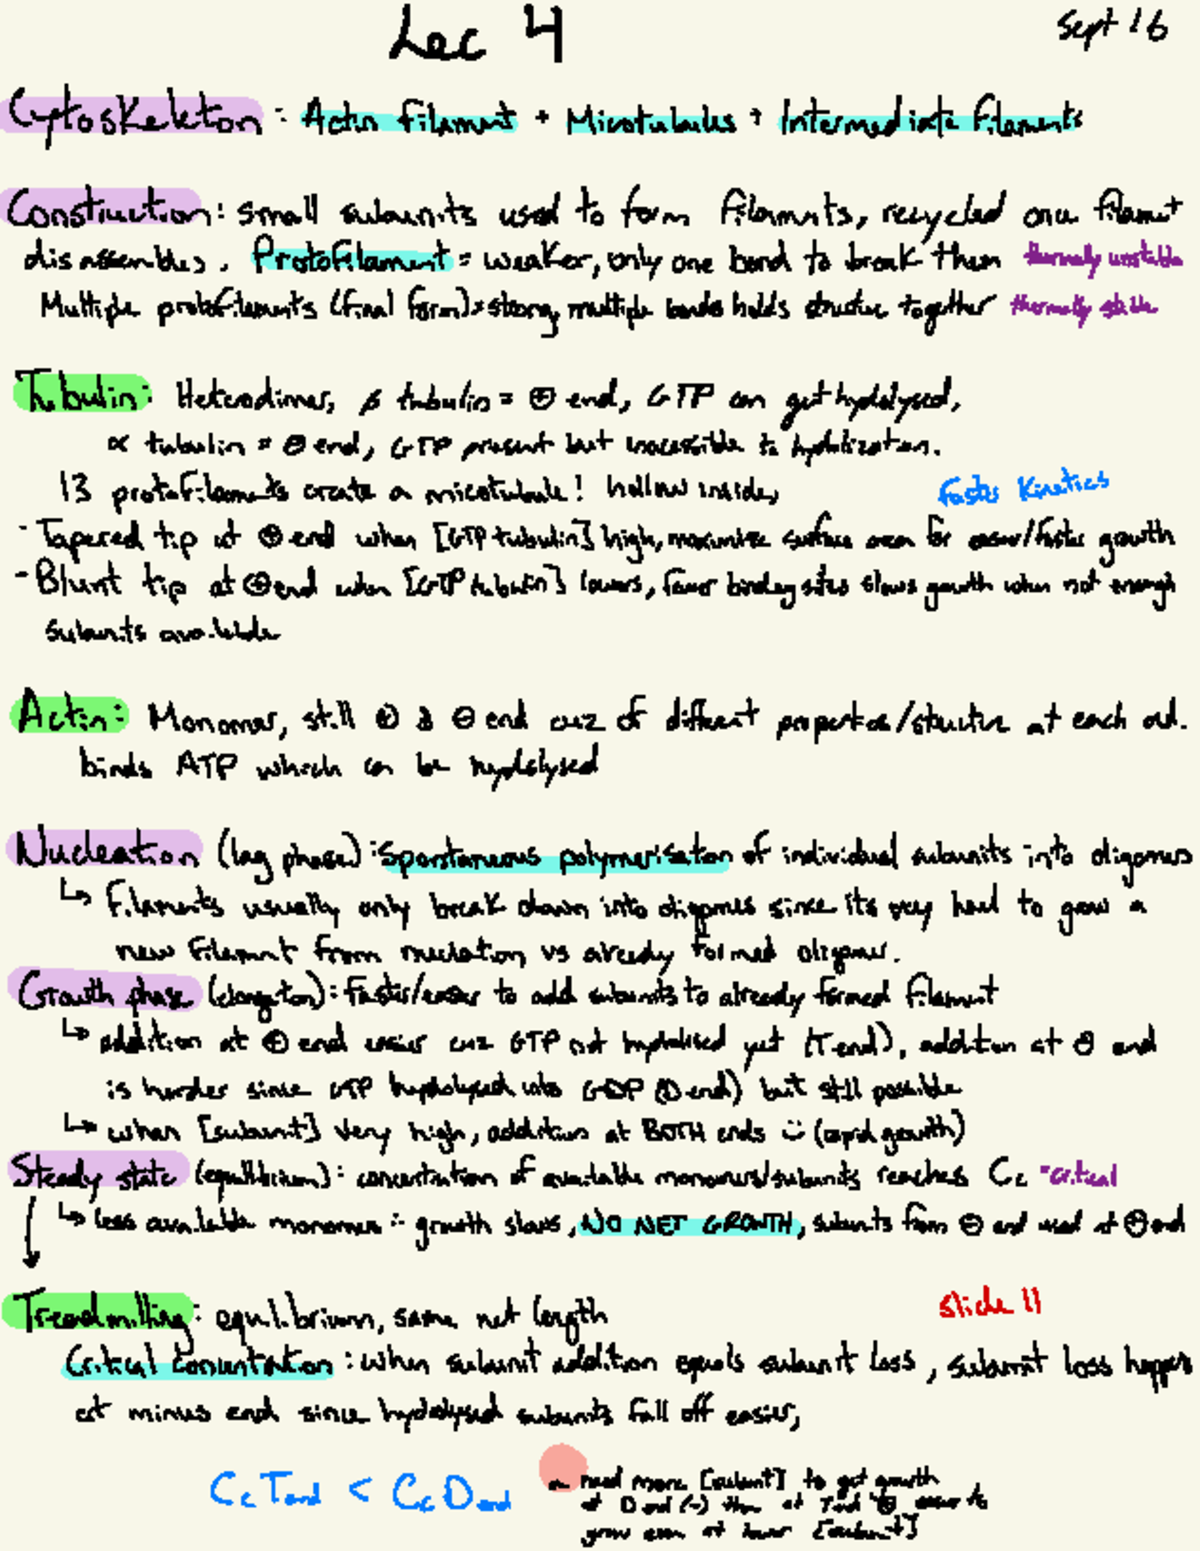 Lec 4
Sept 16
Cytoskeleton: Actin filament + Microtubules + Intermediate filaments
Construction: small subunits used to form filaments, recycled once filament
disassembles. Protofilament = weaker, only one bond to break them thermally unstable
Multiple protofilaments (final form) = strong, multiple bonds holds structure together thermally stable
Tubulin: Heterodimer, β tubulin = ⊕ end, GTP can get hydolysed,
α tubulin = ⊖ end, GTP present but inaccessible to hydolization.
13 protofilaments create a microtubule! hollow inside,
faster kinetics
- Tapered tip at ⊕ end when [GTP tubulin] high, maximize surface area for easier/faster growth
- Blunt tip at ⊕ end when [GTP tubulin] lowers, fewer binding sites slows growth when not enough
subunits available
Actin: Monomer, still ⊕ & ⊖ end cuz of different properties/structure at each end.
binds ATP which can be hydolysed
Nucleation (lag phase): Spontaneous polymerisation of individual subunits into oligomers
↳ filaments usually only break down into oligomers since its very hard to grow a
new filament from nucleation vs already formed oligomer.
Growth phase (elongation): faster/easier to add subunits to already formed filament
↳ addition at ⊕ end easier cuz GTP not hydolised yet (T end), addition at ⊖ end
is harder since GTP hydolysed into GDP (D end) but still possible
↳ when [subunit] very high, addition at BOTH ends :) (rapid growth)
Steady state (equilibrium): concentration of available monomers/subunits reaches Cc *critical
↳ less available monomer ∴ growth slows, NO NET GROWTH, subunits from ⊖ end used at ⊕ end
Treadmilling: equilibrium, same net length
slide 11
Critical Concentration: when subunit addition equals subunit loss, subunit loss happens
at minus end since hydolysed subunits fall off easier,
Cc T end < Cc D end
need more [subunit] to get growth
at D end (-) than at T end ⊕ easier to
grow even at lower [subunit]